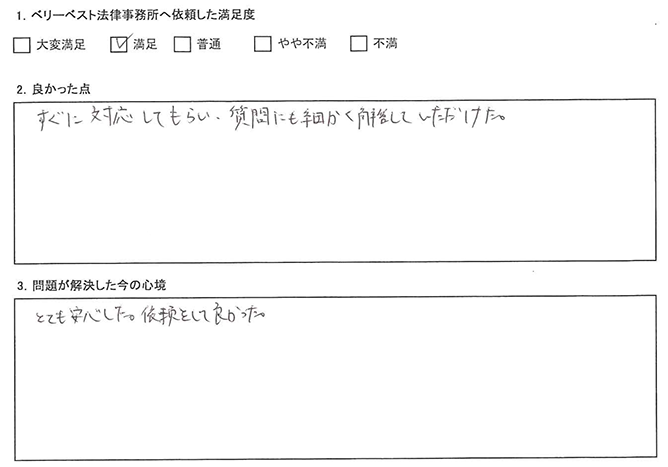 1. ベリーベスト法律事務所へ依頼した満足度
□ 大変満足 ☑ 満足 □ 普通 □ やや不満 □ 不満
2. 良かった点
すぐに対応してもらい、質問にも細かく解答していただけた。
3. 問題が解決した今の心境
とても安心した。依頼をして良かった。